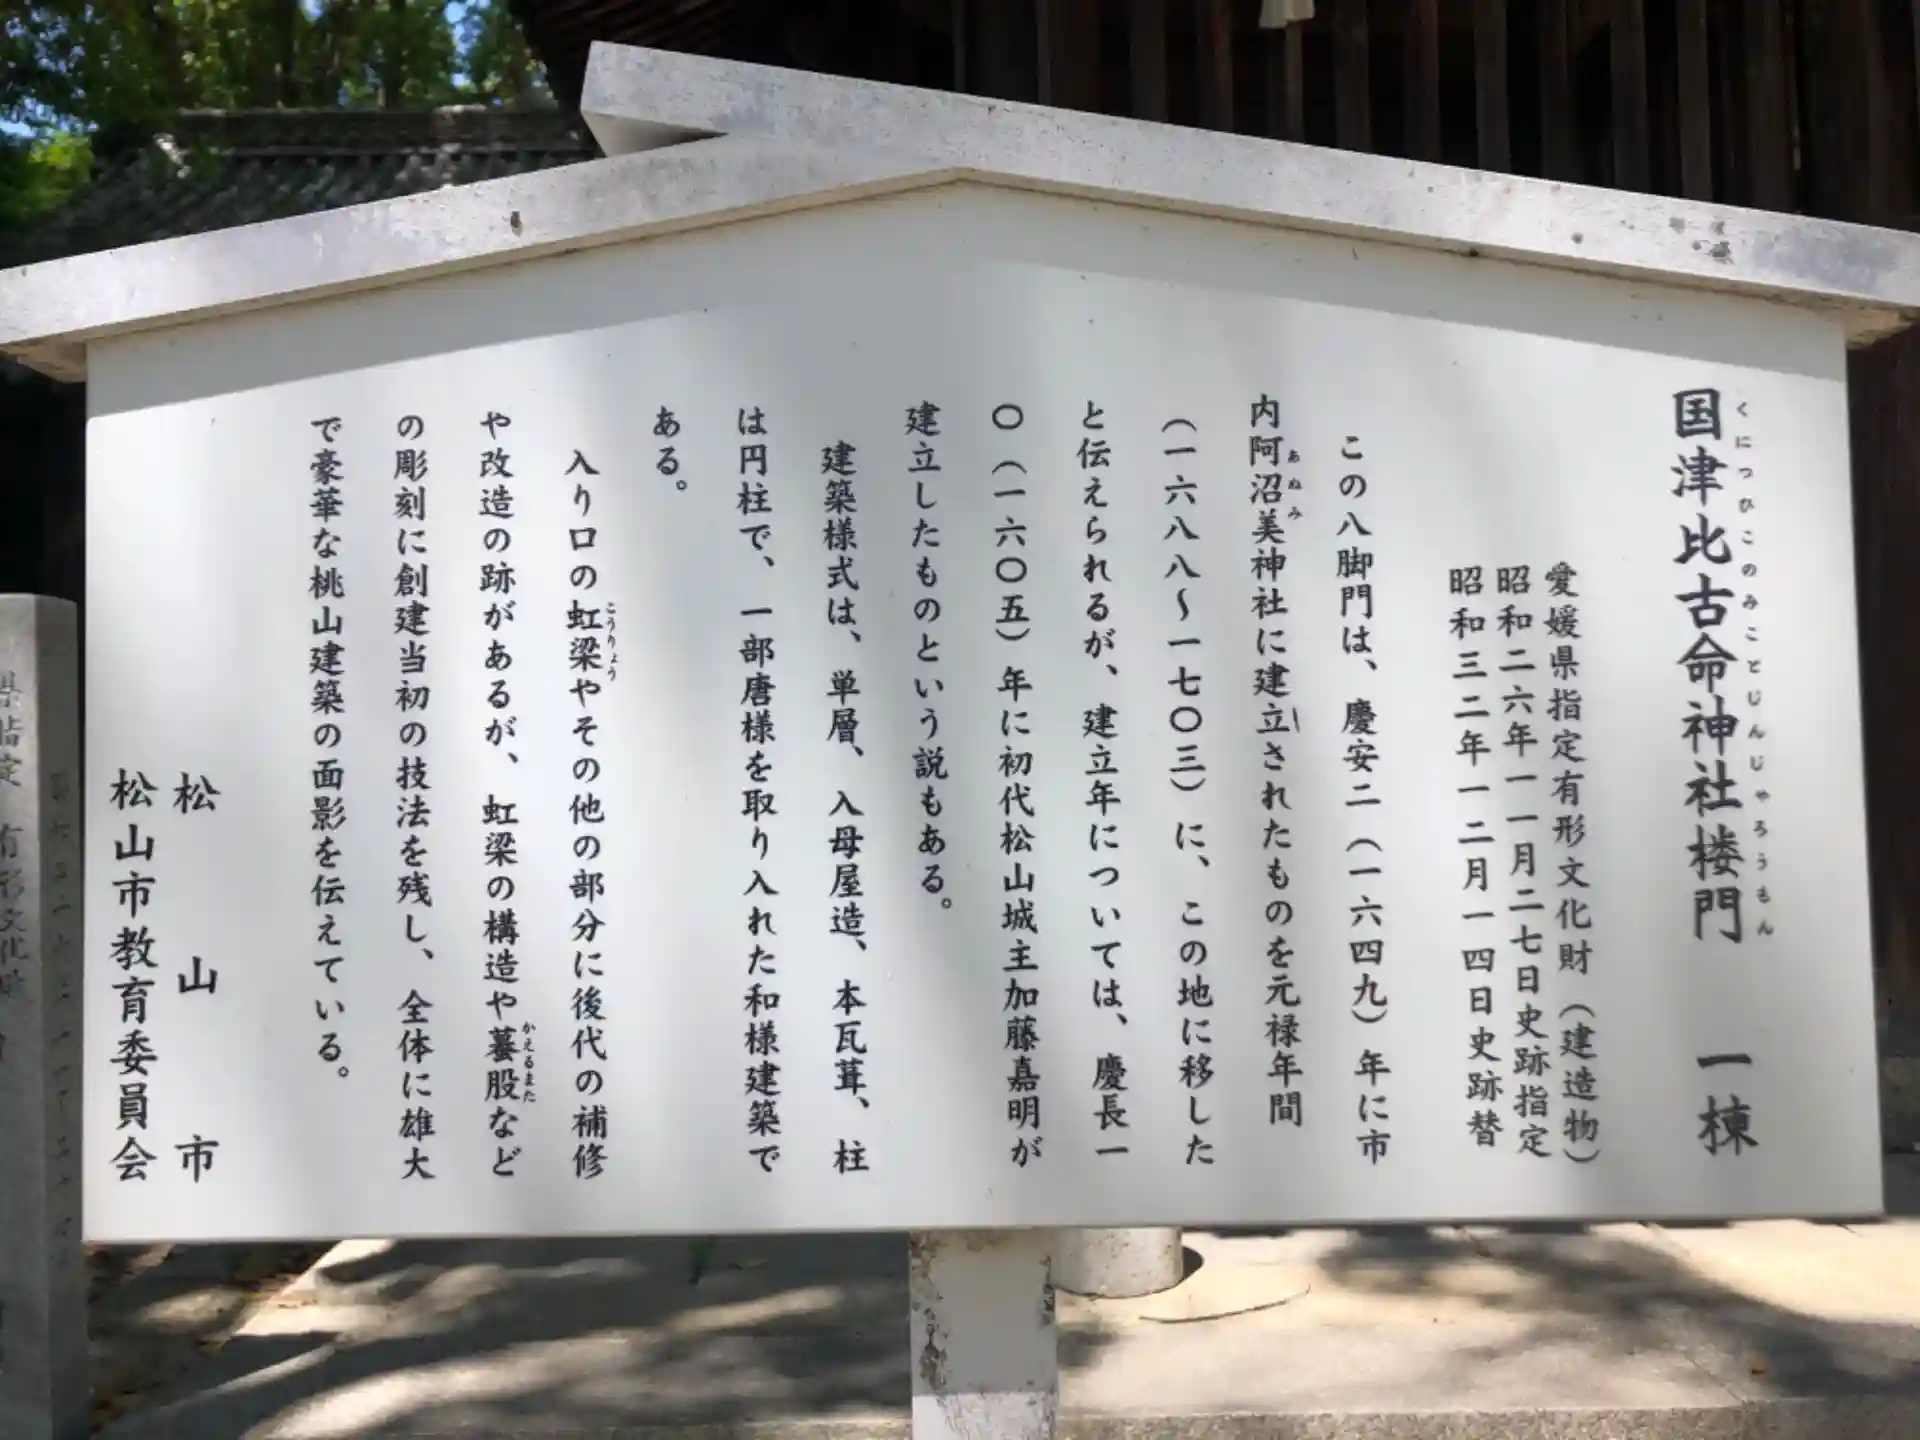 国津比古命神社楼門　一棟
くにつひこのみことじんじゃろうもん
愛媛県指定有形文化財（建造物）
昭和二六年一一月二七日史跡指定
昭和三二年一二月一四日史跡替
この八脚門は、慶安二（一六四九）年に市
内阿沼美神社に建立されたものを元禄年間
あぬみ
（一六八八〜一七〇三）に、この地に移した
と伝えられるが、建立年については、慶長一
〇（一六〇五）年に初代松山城主加藤嘉明が
建立したものという説もある。
建築様式は、単層、入母屋造、本瓦葺、柱
は円柱で、一部唐様を取り入れた和様建築で
ある。
入り口の虹梁やその他の部分に後代の補修
こうりょう
や改造の跡があるが、虹梁の構造や蟇股など
かえるまた
の彫刻に創建当初の技法を残し、全体に雄大
で豪華な桃山建築の面影を伝えている。
松山市
松山市教育委員会